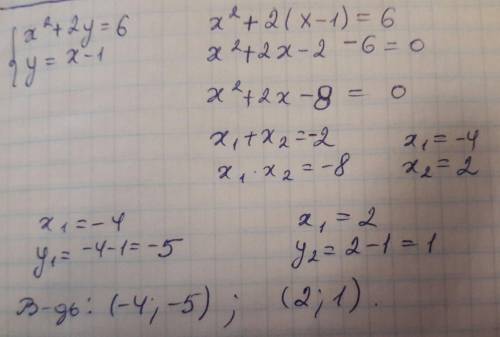 { x²+2y=6
y=x-1
x²+2(x-1)=6
x²+2x-2-6=0
x²+2x-8=0
x₁+x₂=-2
x₁·x₂=-8
x₁=-4
x₂=2
x₁=-4
y₁=-4-1=-5
x₁=2
y₂=2-1=1
В-дь: (-4;-5); (2;1).